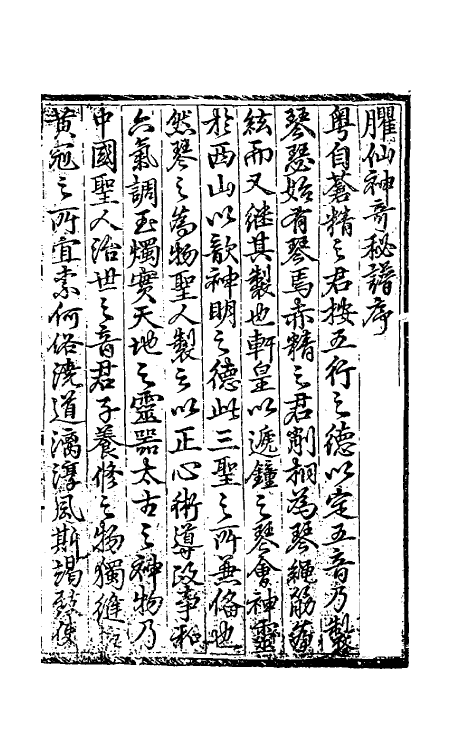 臞仙神奇秘譜序
粵自蒼精之君按五行之德以定五音乃製
琴瑟始有琴焉赤精之君削桐為琴繩絲為
絃而又繼其製也軒皇以遞鐘之琴會神靈
於西山以歆神明之德此三聖之所兼俻也
然琴之為物聖人製之以正心術導政事和
六氣調玉燭實天地之靈器太古之神物乃
中國聖人治世之音君子養修之物獨縫掖
黃冠之所宜素何俗澆道漓淳風斯竭致使